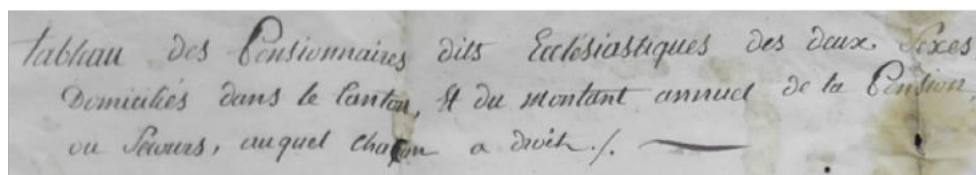 Tableau des Pensionnaires dits Ecclésiastiques des deux Sexes
Domiciliés dans le Canton, et du montant annuel de la Pension,
ou Secours, auquel chacun a droit ./.